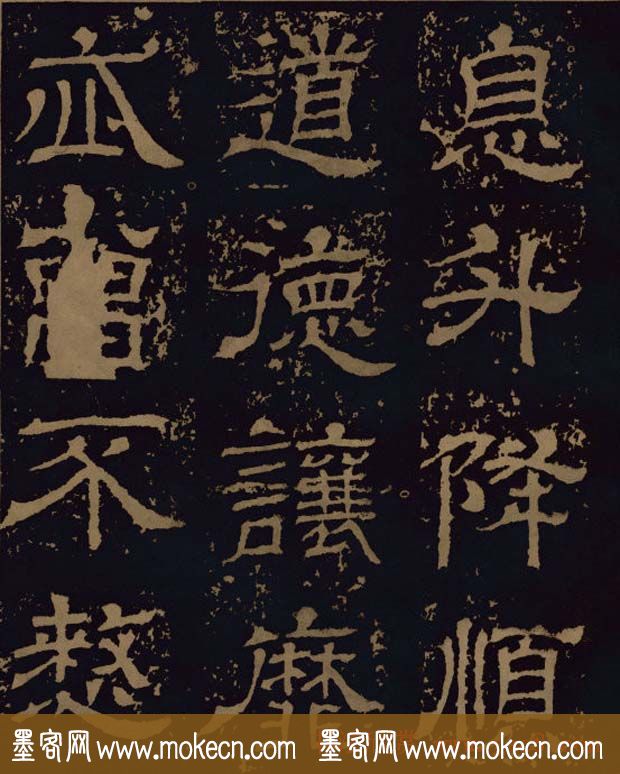 息升降順
道德讓靡
亦不
墨客网 www.mokecn.com 墨客网 www.mokecn.com